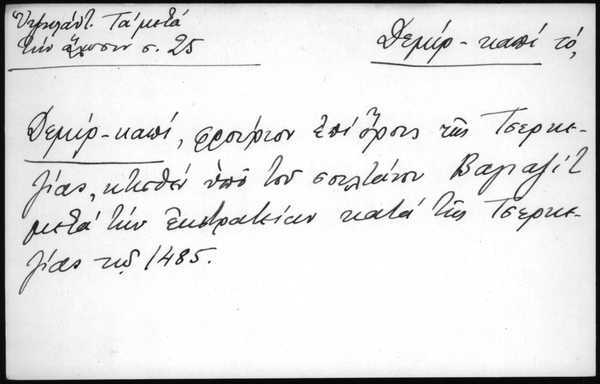 Ὑψηλάντ. Τὰ μετὰ
τὴν ἅλωσιν σ. 25
Δεμίρ-καπί τό,
Δεμίρ-καπί, φρούριον ἐπὶ ὄρους τῆς Τσερκε-
ζίας, κτισθὲν ὑπὸ τοῦ σουλτάνου Βαγιαζίτ
μετὰ τὴν ἐκστρατείαν κατὰ τῆς Τσερκε-
ζίας τῷ 1485.